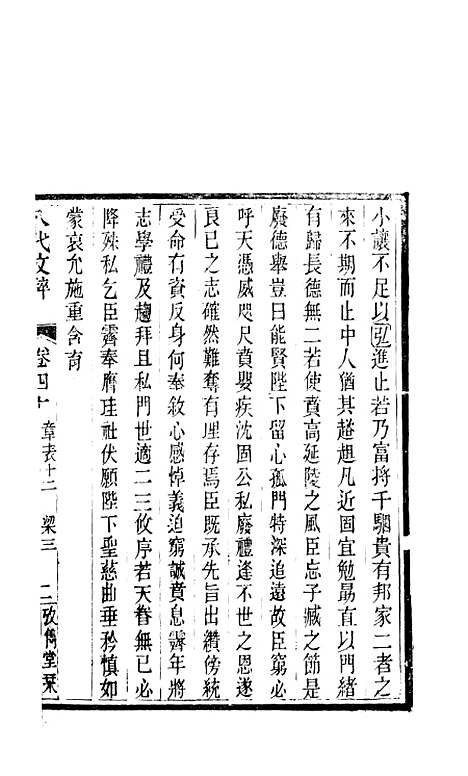 小讓不足以弘進止若乃富將千駟貴有邦家二者之
來不期而止中人猶其趑趄凡近固宜勉勗直以門緒
有歸長德無二若使賁高延陵之風臣忘子臧之節是
廢德舉豈曰能賢陛下留心孤門特深追遠故臣窮必
呼天憑威咫尺賁嬰疾沈固公私廢禮逢不世之恩遂
良已之志確然難奪有理存焉臣既承先旨出纘傍統
受命有資反身何奉敘心感悼義迫窮誠賁息霽年將
志學禮及趨拜且私門世適二三攸序若天眷無已必
降殊私乞臣霽奉膺珪社伏願陛下聖慈曲垂矜慎如
蒙哀允施重含育
八代文粹 卷四十 章表十二 梁三 二 攷雋堂栞